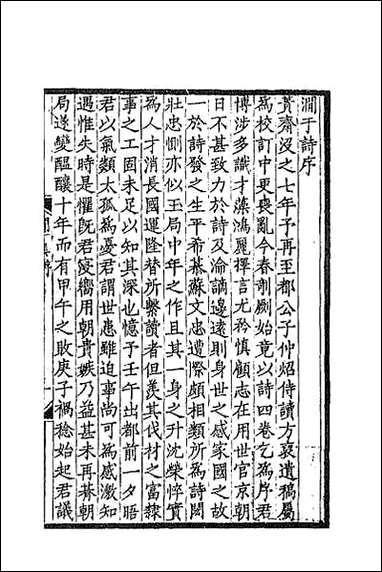 澗于詩序
蕢齋沒之七年予再至都公子仲炤侍讀方裒遺稿屬
為校訂中更喪亂今春剞劂始竟以詩四卷乞為序君
博涉多識才藻鴻麗擇言尤矜慎顧志在用世官京朝
日不甚致力於詩及淪謫邊遠則身世之感家國之故
一於詩發之生平希慕蘇文忠遭際頗相類所為詩閎
壯忠惻亦似玉局中年之作且其一身之升沈榮悴實
為人才消長國運隆替所繫讀者但羨其伐材之富隸
事之工固未足以知其深也憶予壬午出都前一夕晤
君以氣類太孤為憂君謂世患雖迫事尚可為感激知
遇惟失時是懼旣君寖嚮用朝貴嫉乃益甚未再朞朝
局遂變醞釀十年而有甲午之敗庚子禍稔始起君議